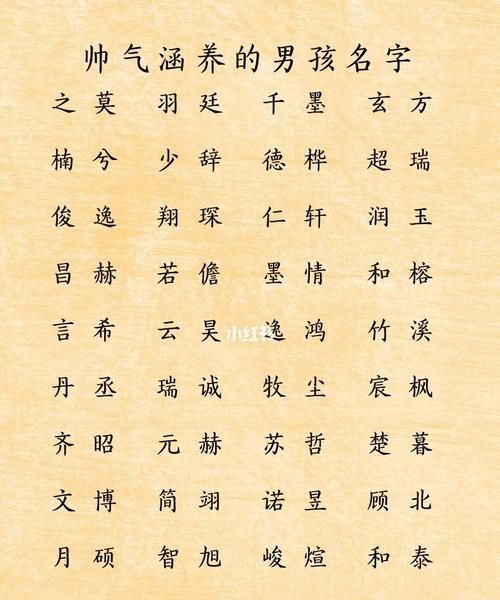 帅气涵养的男孩名字
之莫 羽廷 千墨 玄方
楠兮 少辞 德桦 超瑞
俊逸 翔琛 仁轩 润玉
昌赫 若儋 墨情 和榕
言希 云昊 逸鸿 竹溪
小红书
丹丞 瑞诚 牧尘 宸枫
齐昭 元赫 苏哲 楚暮
文博 简翊 诺昱 顾北
月硕 智旭 峻煊 和泰